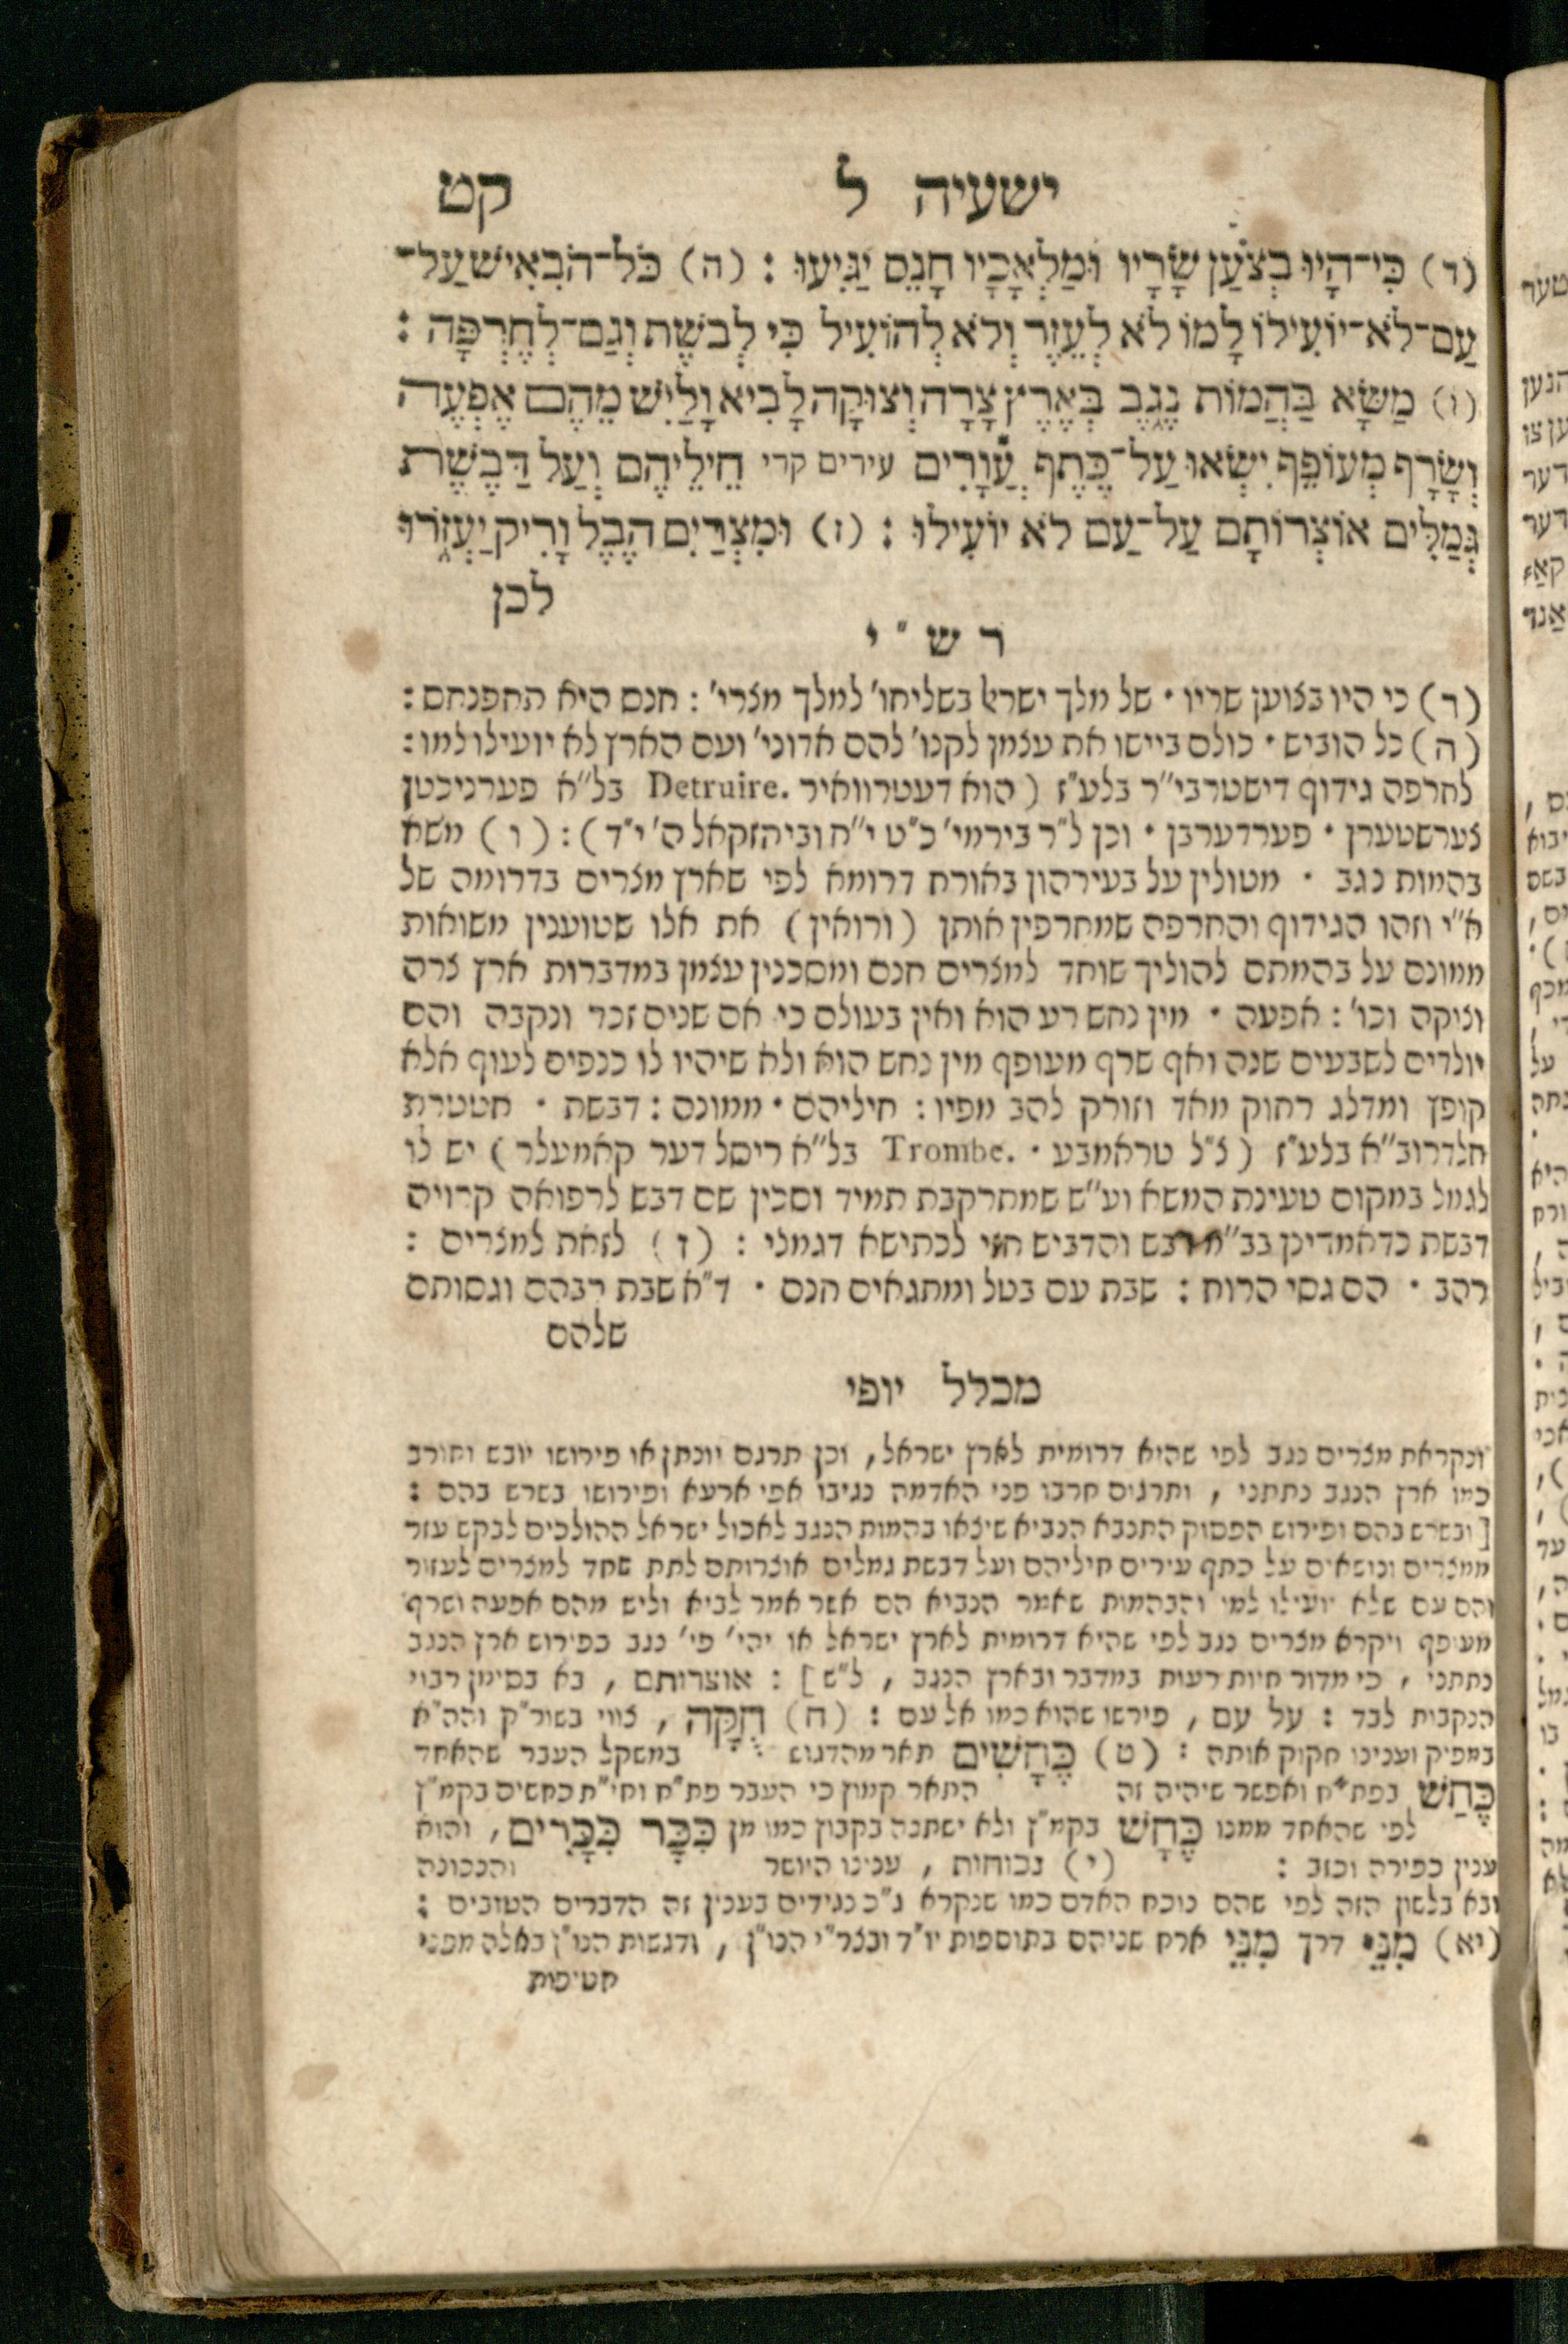 ישעיה ל קט
(ד) כִּי־הָיוּ בְצֹעַן שָׂרָיו וּמַלְאָכָיו חָנֵס יַגִּיעוּ : (ה) כֹּל־הֹבִאִישׁ עַל־
עַם־לֹא־יוֹעִילוּ לָמוֹ לֹא לְעֵזֶר וְלֹא לְהוֹעִיל כִּי לְבֹשֶׁת וְגַם־לְחֶרְפָּה :
(ו) מַשָּׂא בַּהֲמוֹת נֶגֶב בְּאֶרֶץ צָרָה וְצוּקָה לָבִיא וָלַיִשׁ מֵהֶם אֶפְעֶה
וְשָׂרָף מְעוֹפֵף יִשְׂאוּ עַל־כֶּתֶף עֲוָרִים עירים קרי חֵילֵיהֶם וְעַל דַּבֶּשֶׁת
גְּמַלִּים אוֹצְרוֹתָם עַל־עַם לֹא יוֹעִילוּ : (ז) וּמִצְרַיִם הֶבֶל וָרִיק יַעְזֹרוּ
לכן
ר ש " י
(ד) כי היו בצוען שריו · של מלך ישראל בשליחו' למלך מצרי' : חנס היא תחפנחס :
(ה) כל הוביש · כולם ביישו את עצמן לקנו' להם אדוני' ועם הארץ לא יועילו למו :
לחרפה גידוף דישטרבי"ר בלע"ז ( הוא דעטרוואיר Detruire. בל"א פערניכטן
צערשטערן · פערדערבן · וכן ל"ר בירמי' כ"ט י"ח וביחזקאל ה' י"ד) : (ו) משא
בהמות נגב · מטולין על בעירהון באורח דרומא לפי שארץ מצרים בדרומה של
א"י וזהו הגידוף והחרפה שמחרפין אותן (ורואין) את אלו שטוענין משואות
ממונם על בהמתם להוליך שוחד למצרים חנם ומסכנין עצמן במדברות ארץ צרה
וצוקה וכו' : אפעה · מין נחש רע הוא ואין בעולם כי אם שנים זכר ונקבה והם
יולדים לשבעים שנה ואף שרף מעופף מין נחש הוא ולא שיהיו לו כנפים לעוף אלא
קופץ ומדלג רחוק מאד וזורק להב מפיו : חיליהם · ממונם : דבשת · חטטרת
חלדרוב"א בלע"ז (צ"ל טראמבע · Trombe. בל"א ריסל דער קאמעלר) יש לו
לגמל במקום טעינת המשא וע"ש שמתרקבת תמיד וסכין שם דבש לרפואה קרויה
דבשת כדאמרינן בב"מ דבש והדביש חזי לכתישא דגמלי : (ז) לזאת למצרים :
רהב · הם גסי הרוח : שבת עם בטל ומתגאים חנם · ד"א שבת רבהם וגסותם
שלהם
מכלל יופי
ונקראת מצרים נגב לפי שהיא דרומית לארץ ישראל, וכן תרגם יונתן או פירושו יובש וחורב
כמו ארץ הנגב נתתני , ותרגום חרבו פני האדמה נגיבו אפי ארעא ופירושו בשרש בהם :
[ ובשרש בהם ופירוש הפסוק התנבא הנביא שיצאו בהמות הנגב לאכול ישראל ההולכים לבקש עזר
ממצרים ונושאים על כתף עירים חיליהם ועל דבשת גמלים אוצרותם לתת שחד למצרים לעזור
והם עם שלא יועילו למו והבהמות שאמר הנביא הם אשר אמר לביא וליש מהם אפעה ושרף
מעופף ויקרא מצרים נגב לפי שהיא דרומית לארץ ישראל או יהי' פי' נגב כפירוש ארץ הנגב
נתתני , כי מדור חיות רעות במדבר ובארץ הנגב , ל"ש] : אוצרותם , בא בסימן רבוי
הנקבות לבד : על עם , פירשו שהוא כמו אל עם : (ח) חֻקָּהּ , צווי בשור"ק והה"א
במפיק וענינו חקוק אותה : (ט) כֶּחָשִׁים תאר מהדגוש במשקל העבר שהאחד
כֶּחַשׁ בפת"ח ואפשר שיהיה זה התאר קמוץ כי העבר פת"ח וחי"ת כחשים בקמ"ץ
לפי שהאחד ממנו כֶּחָשׁ בקמ"ץ ולא ישתנה בקבוץ כמו מן כִּכָּר כִּכָּרִים, והוא
ענין כפירה וכזב : (י) נכוחות , ענינו היושר והנכונה
ובא בלשון הזה לפי שהם נוכח האדם כמו שנקרא ג"כ נגידים בענין זה הדברים הטובים :
(יא) מִנֵּי דרך מִנֵּי ארח שניהם בתוספות יו"ד ובצר"י הנו"ן , ודגשות הנו"ן באלה מפני
חטיפות